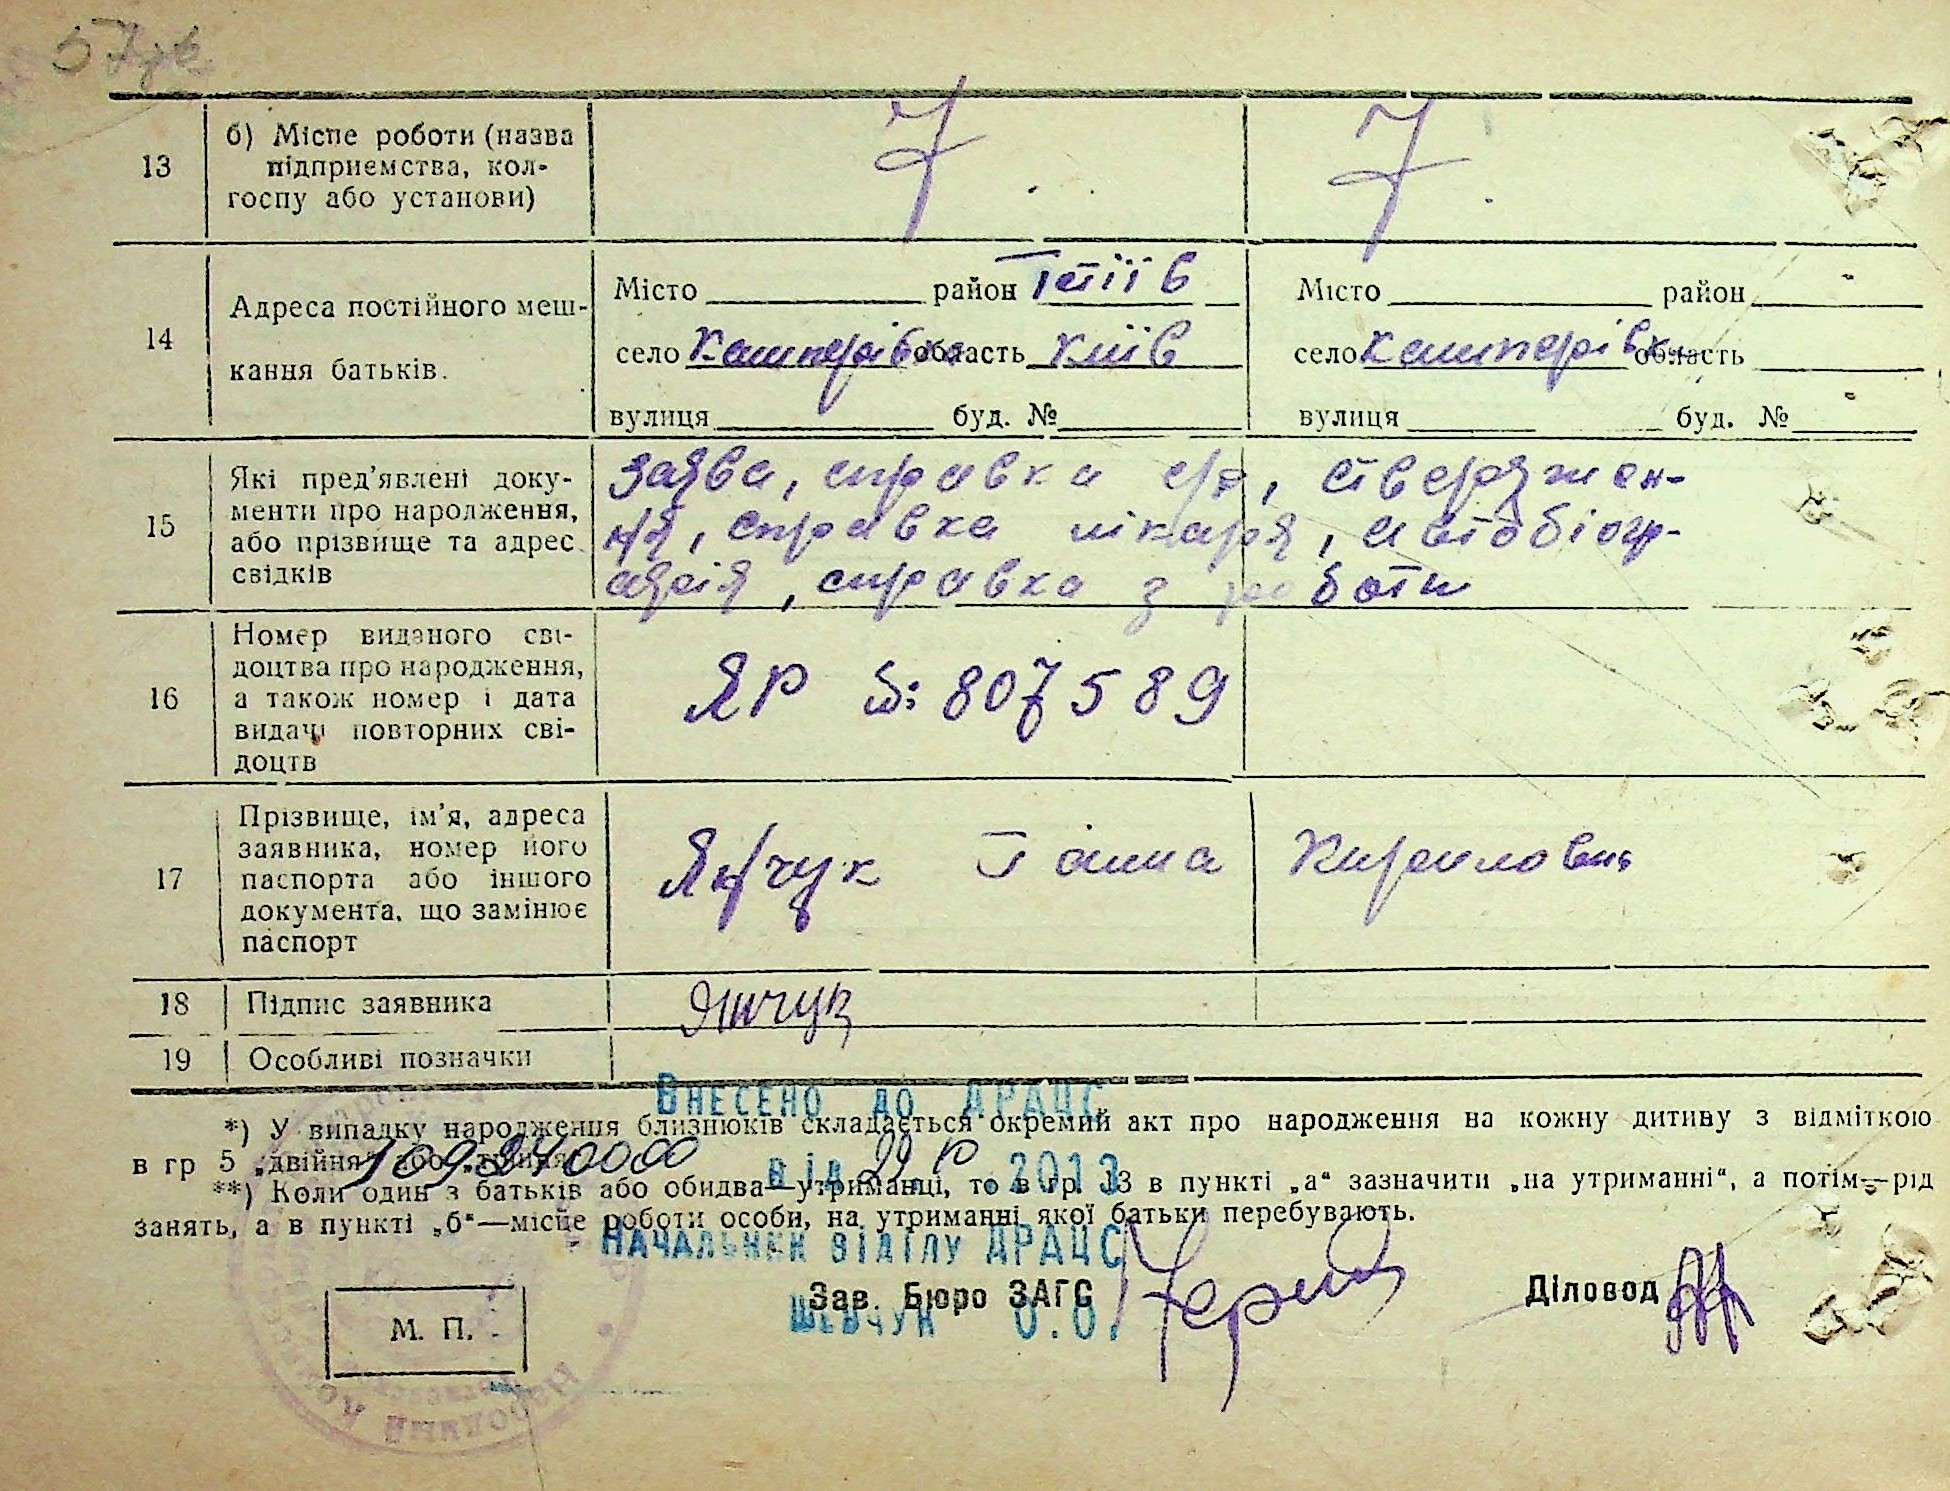 13
б) Місце роботи (назва
підприємства, кол-
госпу або установи)
14
Адреса постійного меш-
кання батьків.
Місто район Тетіїв
село Кашперівка область Київ
вулиця буд. №
Місто район
село Кашперівка область
вулиця буд. №
15
Які пред'явлені доку-
менти про народження,
або прізвище та адрес
свідків
заява, справка с/р, стверджен-
ня, справка лікаря, автобіогр-
афія, справка з роботи
16
Номер виданого сві-
доцтва про народження,
а також номер і дата
видачі повторних сві-
доцтв
ЯР №: 807589
17
Прізвище, ім'я, адреса
заявника, номер його
паспорта або іншого
документа, що замінює
паспорт
Янчук Ганна Кириловна
18
Підпис заявника
Янчук
19
Особливі позначки
Внесено до ДРАЦС
*) У випадку народження близнюків складається окремий акт про народження на кожну дитину з відміткою
в гр 5 „двійня" або „трійня"
від 2013
**) Коли один з батьків або обидва—утриманці, то в гр. 13 в пункті „а" зазначити „на утриманні", а потім—рід
занять, а в пункті „б"—місце роботи особи, на утриманні якої батьки перебувають.
Начальник відділу ДРАЦС
Зав. Бюро ЗАГС
Діловод
Шевчук О.О.
М. П.